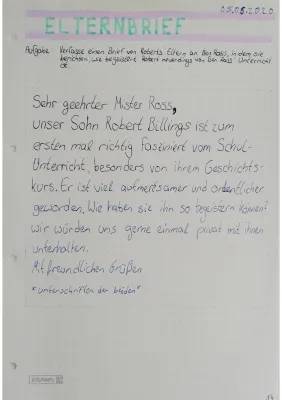 05.05.2020
ELTERNBRIEF
Aufgabe Verfasse einen Brief von Roberts Eltern an Ben Ross, in dem sie
berichten, wie begeistert Robert neuerdings von Ben Ross' Unterricht
ist
Sehr geehrter Mister Ross,
unser Sohn Robert Billings ist zum
ersten mal richtig fasziniert vom Schul-
Unterricht, besonders von ihrem Geschichts-
kurs. Er ist viel aufmerksamer und ordentlicher
geworden. Wie haben sie ihn so begeistern können?
Wir würden uns gerne einmal privat mit ihnen
unterhalten.
Mit freundlichen Grüßen
"unterschriften der beiden"